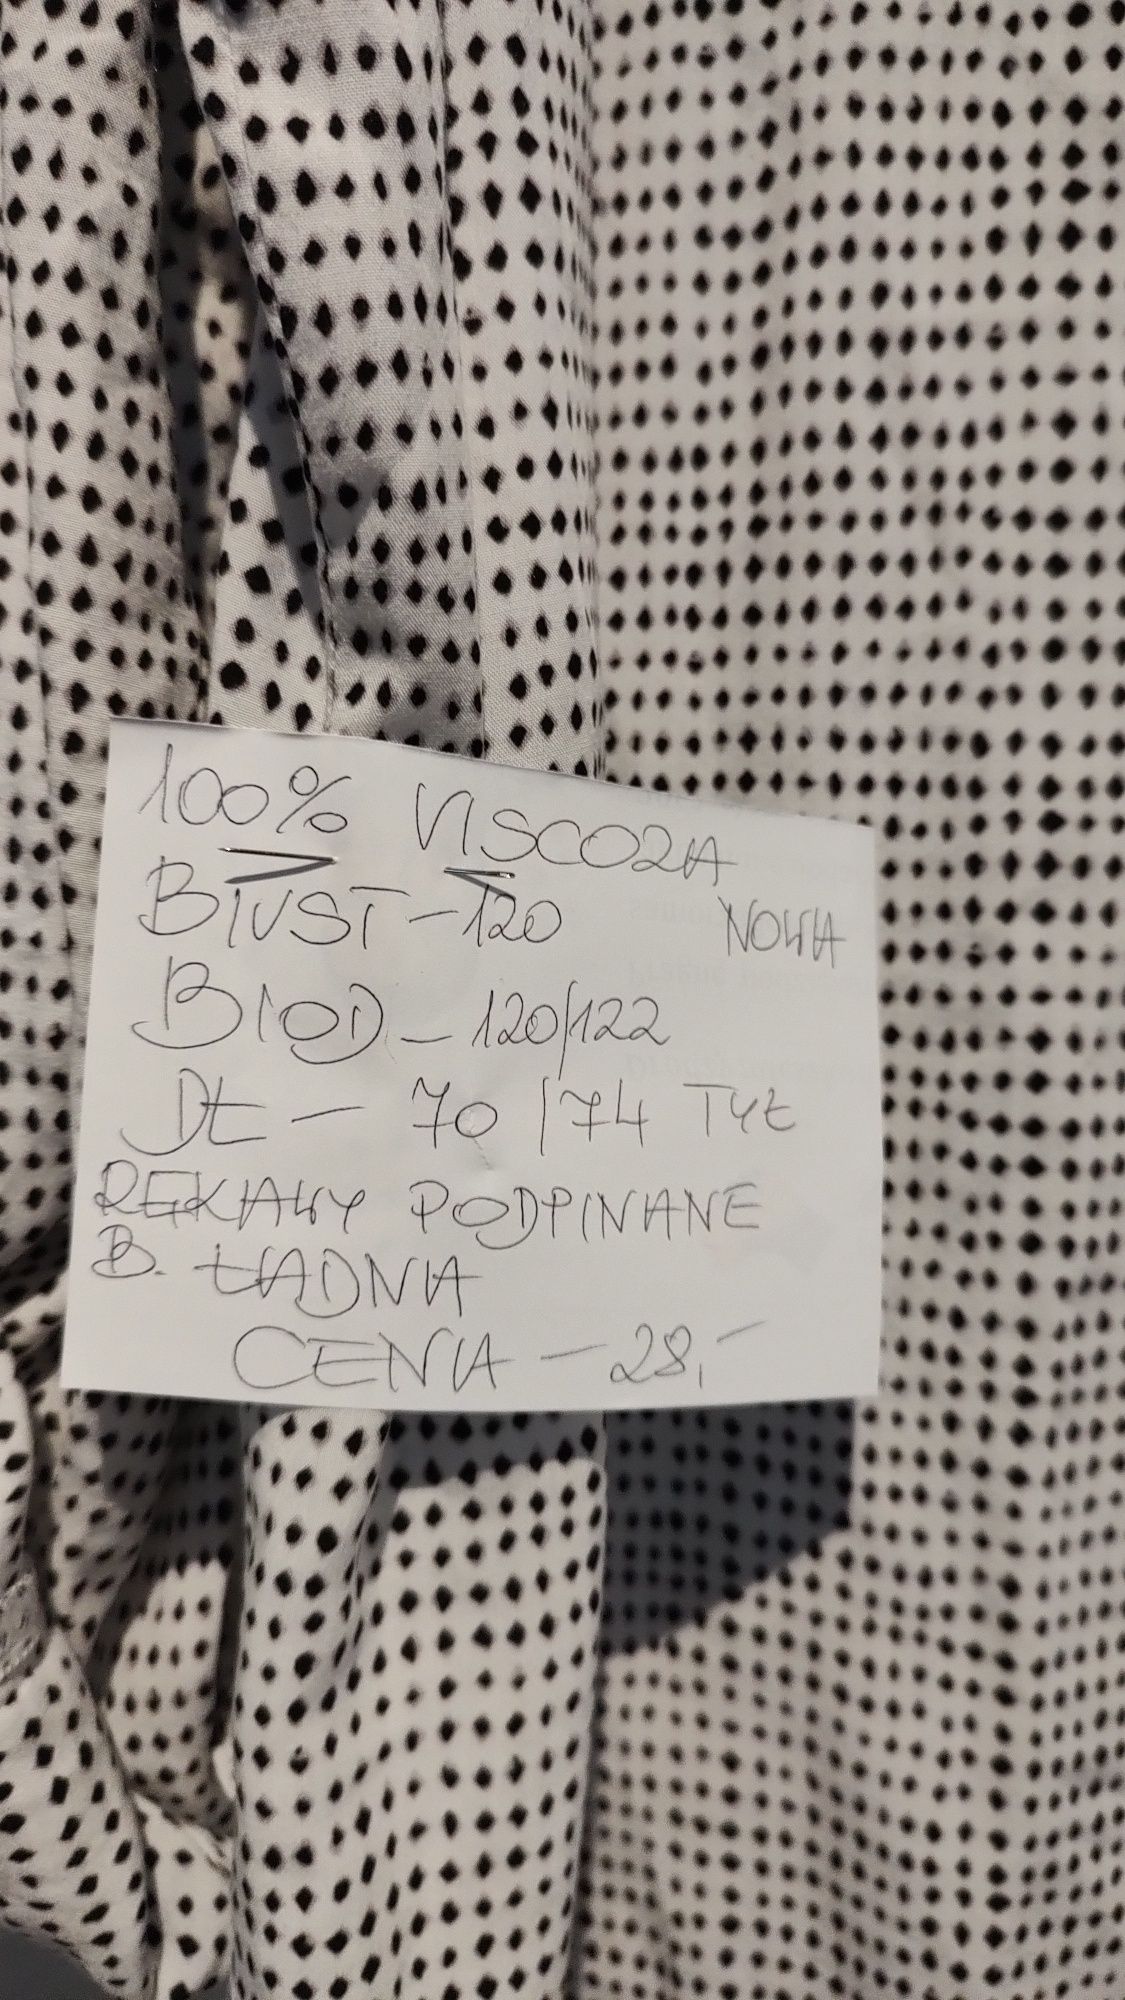 100% VISCOZA
BIUST - 120 NOWA
BIOD - 120/122
DŁ - 70 / 74 TYŁ
RĘKAWY PODPINANE
B. ŁADNA
CENA - 28,-